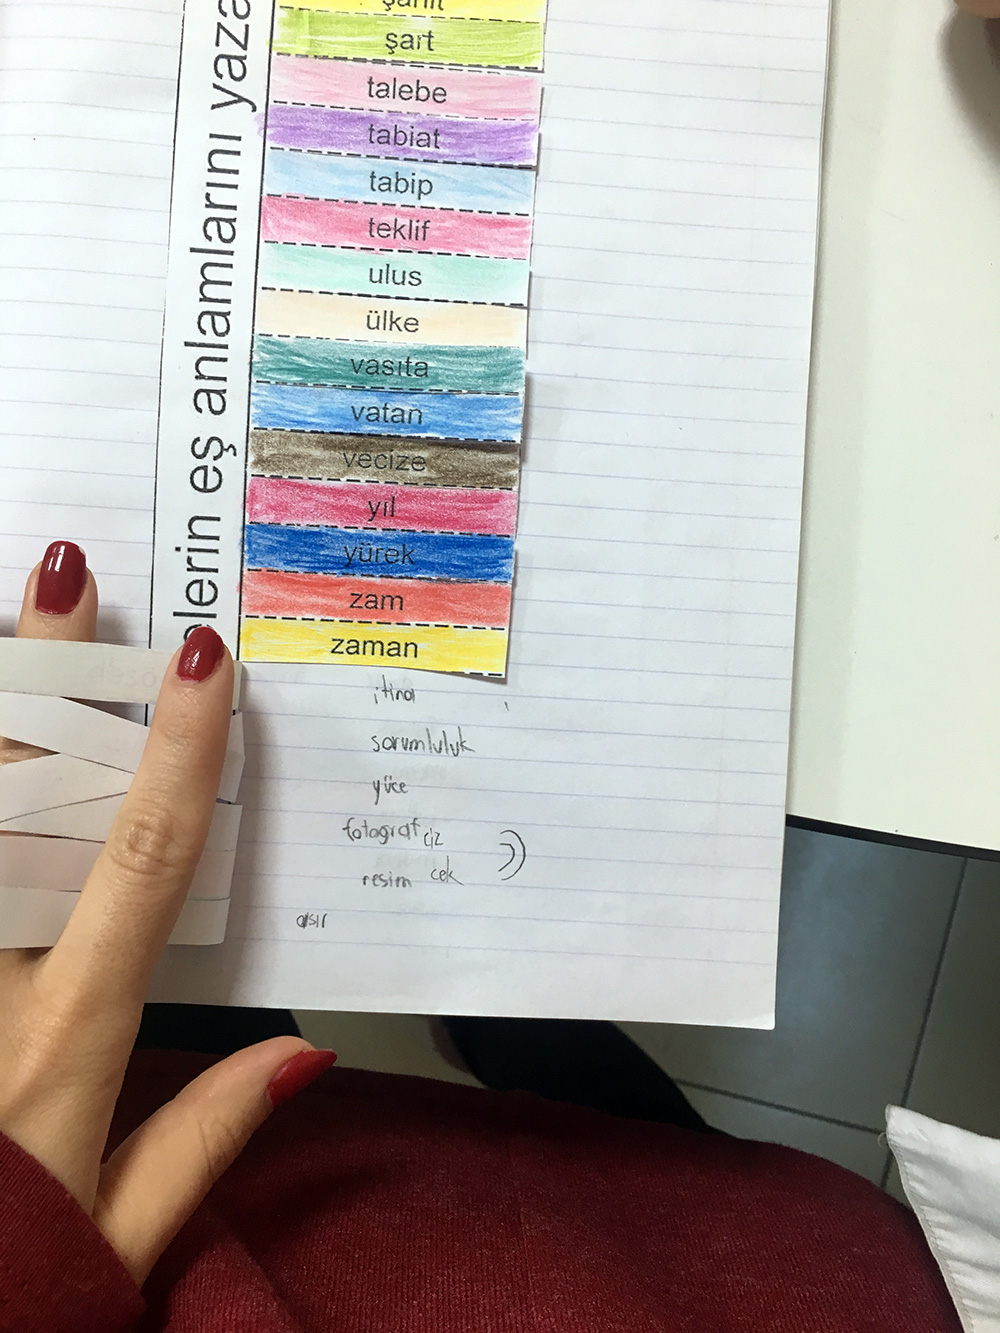 şahit
şart
talebe
tabiat
tabip
teklif
ulus
ülke
vasıta
vatan
vecize
yıl
yürek
zam
zaman
elerin eş anlamlarını yaza
itina
sorumluluk
yüce
fotograf çiz
resim cek
asır